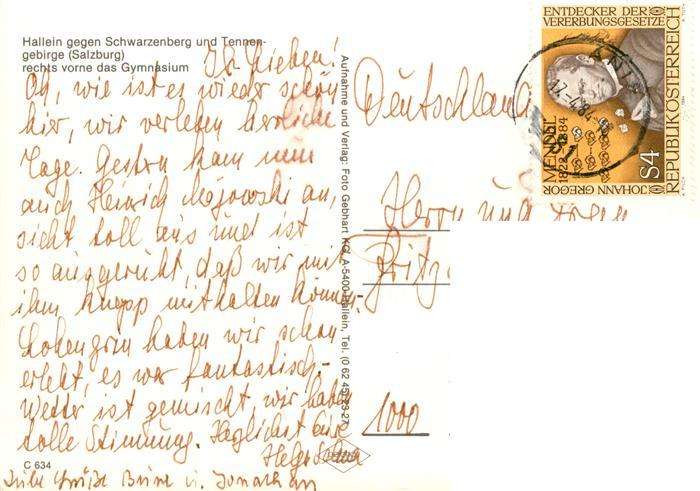 Hallein gegen Schwarzenberg und Tennen-
gebirge (Salzburg)
rechts vorne das Gymnasium
Ihr Lieben!
Oh, wie ist es wieder schön
hier, wir verleben herrliche
Tage. Gestern kam nun
auch Heinrich an,
sieht toll aus und ist
so ausgeruht, daß wir mit
ihm knapp mithalten können.
Lohengrin haben wir schon
erlebt, es war fantastisch.
Wetter ist gemischt, wir haben
tolle Stimmung. Herzlichst Eure
Liebe Grüße
C 634
Aufnahme und Verlag: Foto Gebhart KG, A-5400 Hallein, Tel. (0 62 45) 23-27
Deutschland
Herrn und
Fritz
1000
ENTDECKER DER
VERERBUNGSGESETZE
REPUBLIK ÖSTERREICH
S4
JOHANN GREGOR
MENDEL
1822-1884